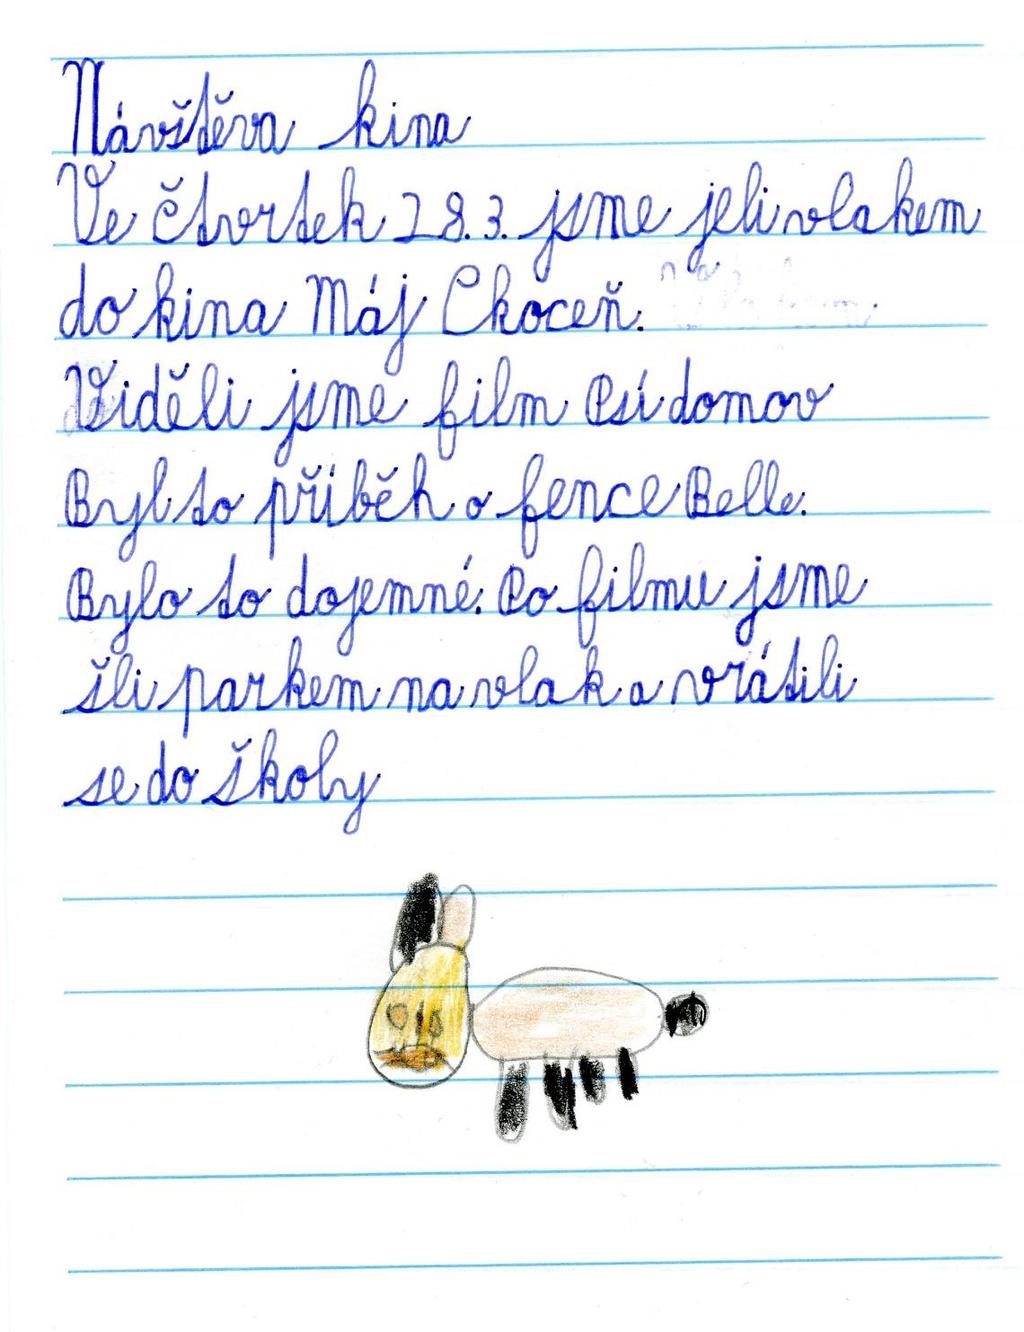 Návštěva kina
Ve čtvrtek 28.3. jsme jeli vlakem
do kina Máj Choceň.
Viděli jsme film Psí domov
Byl to příběh o fence Belle.
Bylo to dojemné. Po filmu jsme
šli parkem na vlak a vrátili
se do školy